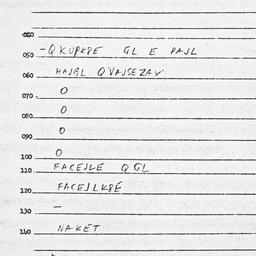 040
050 -QKUPKPE GL E PAJL
060 HAJBL QVAJSEZAV
070 O
080 O
090 O
100 O
110 FACEJLE QGL
120 FACEJLKPÉ
130 –
140 NAKET